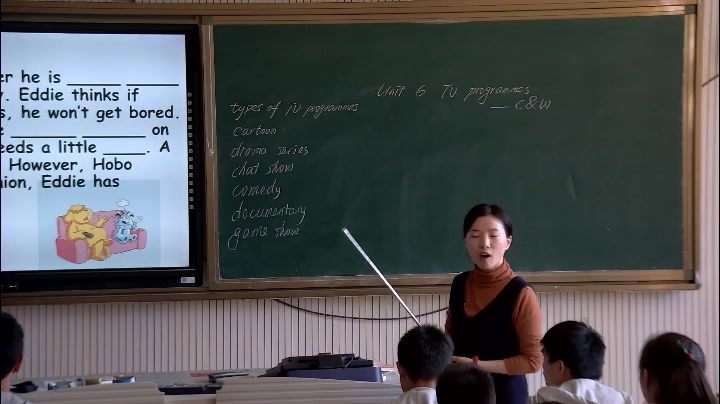 er he is ______ ______
y. Eddie thinks if
s, he won't get bored.
e ______ ______ on
eeds a little _____. A
However, Hobo
nion, Eddie has
Unit 6 TV programmes
— C&W
types of TV programmes
cartoon
drama series
chat show
comedy
documentary
game show